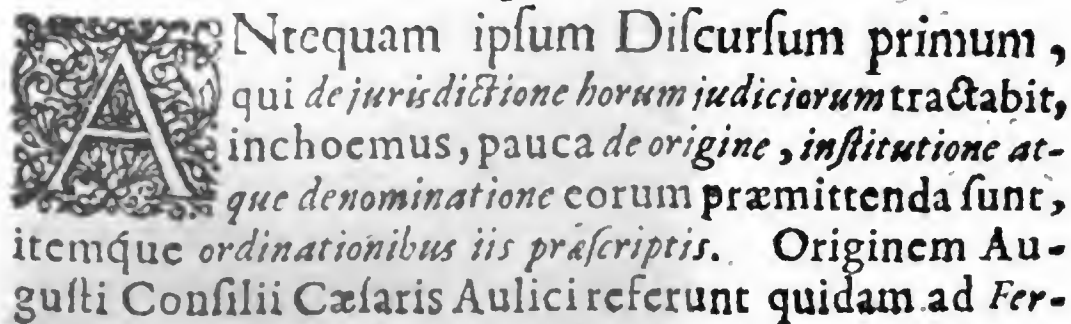 ANtequam ipſum Diſcurſum primum,
qui de jurisdictione horum judiciorum tractabit,
inchoemus, pauca de origine, inſtitutione at-
que denominatione eorum præmittenda ſunt,
itemq́ue ordinationibus iis præſcriptis. Originem Au-
guſti Conſilii Cæſaris Aulici referunt quidam ad Fer-